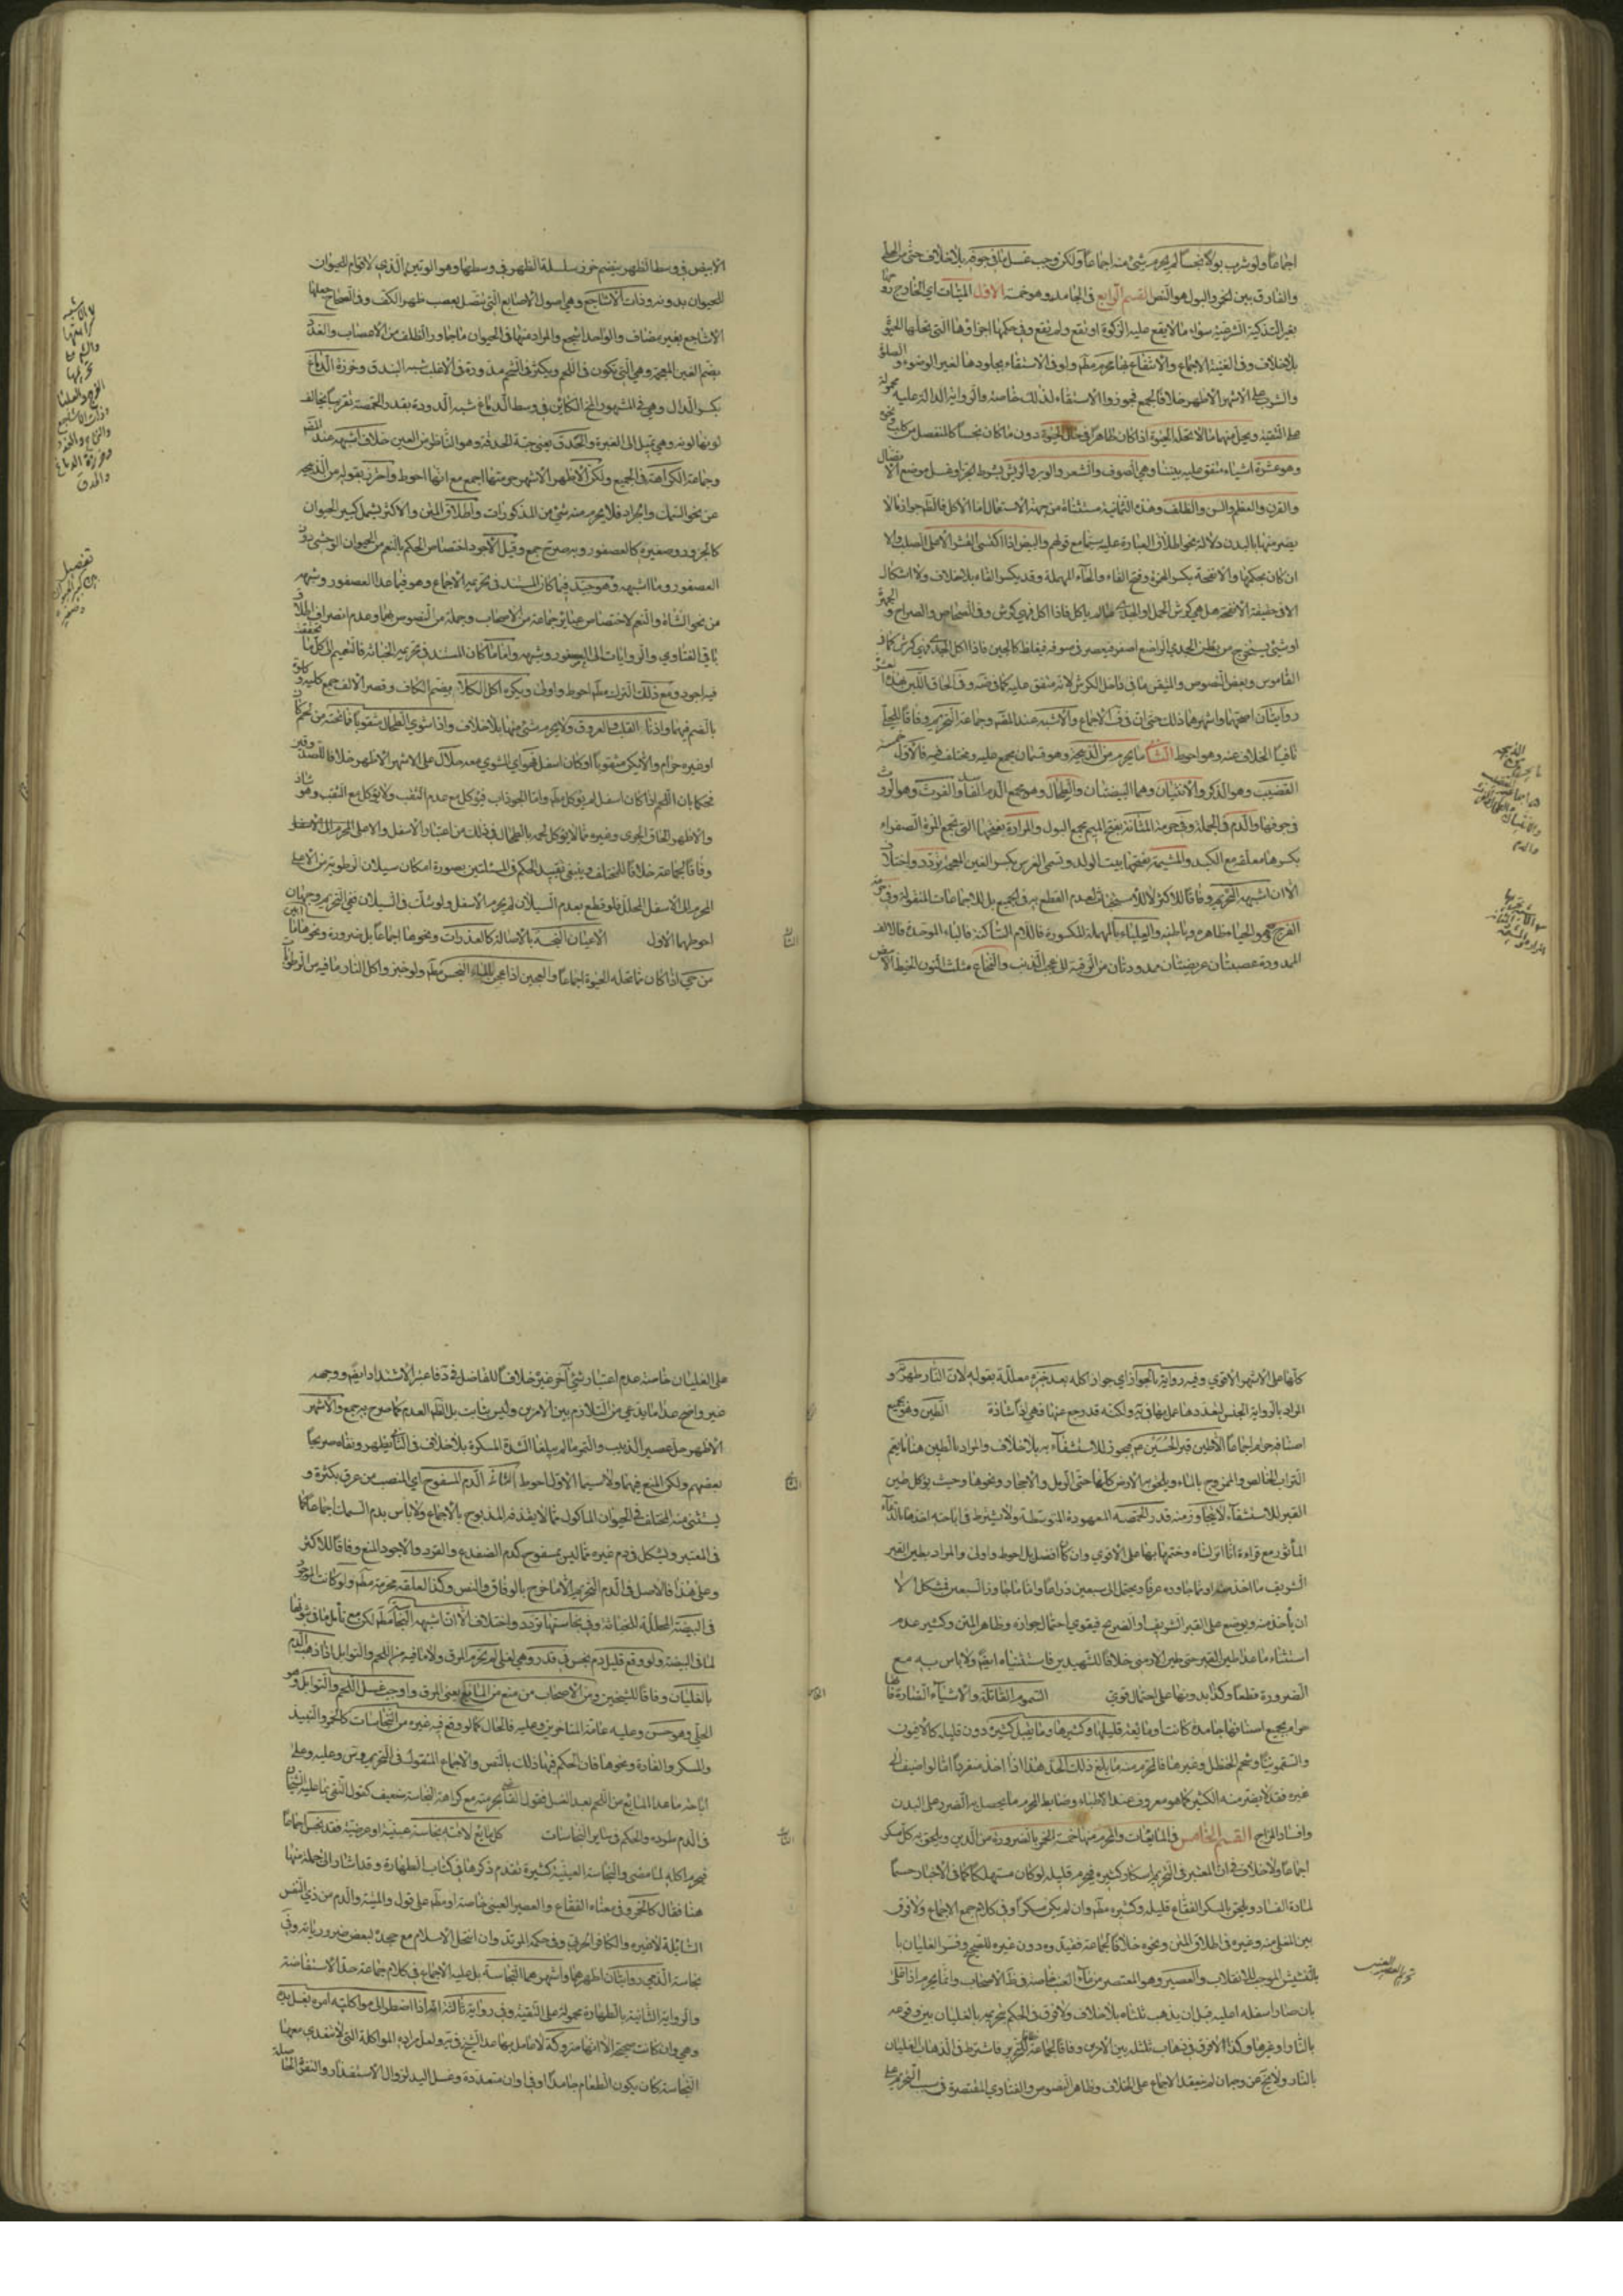 اجماعا ولو شرب بولا نجسا لم يحرم شئ منه اجماعا ولكن وجب غسل ما في جوفه بلا خلاف حتى من الحلي
والفارق بين الخمر والبول هو النص القسم الرابع في الجامد وهو خمسة الاول الميتات اي الخارج روحها
بغير التذكية الشرعية سواء مما لا يقع عليه الزكوة او تقع ولم تقع وفي حكمها اجزاؤها التي تحلها الحيوة
بلا خلاف وفي الغنية الاجماع والانتفاع بها محرم مطلقا ولو في الاستقاء بجلودها لغير الوضوء والصلوة
والشرب على الاشهر الاظهر خلافا لجمع فجوزوا الاستقاء لذلك خاصة والرواية الدالة عليه محمولة
على التقية ويحل منها ما لا تحله الحيوة اذا كان طاهرا في حال الحيوة دون ما كان نجسا كالمنفصل من كلب ونحوه
وهو عشرة اشياء متفق عليه بيننا وهي الصوف والشعر والوبر والريش بشرط الجز او غسل موضع الاتصال
والقرن والعظم والسن والظلف وهذه الثمانية مستثناة من جهة الاستعمال اما الاكل فالظاهر جواز ما لا
يضر منها بالبدن دلالة نحو اطلاق العبارة عليه سيما مع قولهم والبيض اذا اكتسى القشر الاعلى الصلب والا
ان كان بحكمها والانفحة بكسر الهمزة وفتح الفاء والحاء المهملة وقد يكسر الفاء بلا خلاف ولا اشكال
الا في حقيقة الانفحة هل هي كرش الحمل او الجدي ما لم ياكل فاذا اكل فهي كرش وفي الصحاح والصراح والجمهرة
او شئ يستخرج من بطن الجدي الراضع اصفر فيعصر في صوفه فيغلظ كالجبن فاذا اكل الجدي فهي كرش كما في
القاموس وبعض النصوص والمتيقن ما في داخل الكرش لانه متفق عليه وفي الحاق اللبن بهذه العشرة
روايتان اصحهما واشهرهما ذلك حتى ان في الاجماع والاشبه عند المصنف وجماعة التحريم وفاقا للحلي
نافيا الخلاف عنه وهو احوط الثاني ما يحرم من الذبيحة وهو قسمان مجمع عليه ومختلف فيه فالاول خمسة
القضيب وهو الذكر والانثيان وهما البيضتان والطحال وهو مجمع الدم الفاسد والفرث وهو الروث
في جوفها والدم وفي الجملة وفي حرمة المثانة بفتح الميم مجمع البول والمرارة بفتحها التي تجمع المرة الصفراء
بكسرها معلقة مع الكبد والمشيمة بفتحها بيت الولد وتسمى الغرس بكسر الغين المعجمة تردد واختلاف
الا ان اشبهه التحريم وفاقا للاكثر لا للاستخباث لعدم القطع به في الجميع بل للاجماعات المنقولة وفي حرمة
الفرج وهو الحياء ظاهره وباطنه والعلباء بالمهملة المكسورة فاللام الساكنة فالباء الموحدة فالالف
الممدودة عصبتان عريضتان ممدودتان من الرقبة الى عجب الذنب والنخاع مثلث النون الخيط الابيض
الابيض في وسط الظهر ينضم خرز سلسلة الظهر في وسطها وهو الوتين الذي لا قوام للحيوان
للحيوان بدونه وذات الاشاجع وهي اصول الاصابع التي تتصل بعصب ظهر الكف وفي الصحاح جعلها
الاشاجع بغير مضاف والواحد اشجع والمراد منها في الحيوان ما جاور الظلف من الاعصاب والغدد
بضم الغين المعجمة وهي التي تكون في اللحم ويكثر في الشحم مدورة في الاغلب شبه البندق وخرزة الدماغ
بكسر الدال وهي في المشهور المخ الكائن في وسط الدماغ شبه الدودة بقدر الحمصة تقريبا يخالف
لونها لونه وهي تميل الى الغبرة والحدق يعني حبة الحدقة وهو الناظر من العين خلاف اشبهه عند المصنف
وجماعة الكراهة في الجميع ولكن الاظهر الاشهر حرمتها اجمع مع انها احوط واحترز بقوله من الذبيحة
عن نحو السمك والجراد فلا يحرم منه شئ من المذكورات واطلاق المتن والاكثر يشمل كبير الحيوان
كالجزور وصغيره كالعصفور وبه صرح جمع وقيل الاجود اختصاص الحكم بالنعم من الحيوان الوحشي دون
العصفور وما اشبهه وهو جيد فيما كان المستند في تحريمه الاجماع وهو فيما عدا العصفور وشبهه
من نحو الشاة والنعم لاختصاص عبائر جماعة من الاصحاب وجملة من النصوص بهما وعدم انصراف اطلاق
باقي الفتاوي والروايات الى العصفور وشبهه واما ما كان المستند في تحريمه الخباثة فالتعميم الى كل ما تحققت
فيه اجود ومع ذلك الترك مطلقا احوط واولى ويكره اكل الكلا بضم الكاف وقصر الالف جمع كلية وكلوة
بالضم فيهما واذنا القلب والعروق ولا يحرم شئ منها بلا خلاف واذا شوي الطحال مثقوبا فما تحته من لحم كان
او غيره حرام والا يكن مثقوبا او كان اسفل فهو اي المشوي معه حلال على الاشهر الاظهر خلافا للصدوق
فحكما بان اللحم اذا كان اسفل لم يؤكل مطلقا واما الجوذاب فيؤكل مع عدم الثقب ولا يؤكل مع الثقب وهو شاذ
والاظهر الحاق الجري وغيره مما لا يؤكل لحمه بالطحال في ذلك من اعتبار الاسفل والاعلى المحرم الى الاسفل
وفاقا لجماعة خلافا للمختلف وينبغي تقييد الحكم في المسئلتين بصورة امكان سيلان الرطوبة من الاعلى
المحرم الى الاسفل المحلل فلو قطع بعدم السيلان لم يحرم الاسفل ولو شك في السيلان ففي التحريم وجهان
احوطهما الاول الاعيان النجسة بالاصالة كالعذرات ونحوها اجماعا بل ضرورة ونحوها ما ابين
من حي اذا كان مما تحله الحيوة اجماعا والعجين اذا عجن بالماء النجس مطلقا ولو خبز واكل النار ما فيه من الرطوبة
الذبيحة
والانثيان
والدم
الفرج والعلباء
وذات الاشاجع
والنخاع والغدد
وخرزة الدماغ
والحدق
تفصيل
بين كبير الحيوان
وصغيره
كلها على الاشهر الاقوي وفيه رواية بالجواز اي جواز اكله بعد خبزه معللة بقوله لان النار طهرته و
المراد بالرواية الجنس لتعددها عمل بها في ية ولكنه قد رجع عنها فهي اذا شاذة الطين وهو بجميع
اصنافه حرام اجماعا الا طين قبر الحسين ع فيجوز للاستشفاء به بلا خلاف والمراد بالطين هنا ما يعم
التراب الخالص والممزوج بالماء ويلحق به الارض كلها حتى الرمل والاحجار ونحوها وحيث يؤكل طين
القبر للاستشفاء لا يتجاوز منه قدر الحمصة المعهودة المتوسطة ولا يشترط في اباحته اخذها بالدعاء
المأثور مع قراءة انا انزلناه وختمها بها على الاقوي وان كان افضل بل احوط واولى والمراد بطين القبر
الشريف ما اخذ منه او مما جاوره عرفا ويحتمل الى سبعين ذراعا واما ما جاوز السبعين فمشكل الا
ان يأخذ منه ويوضع على القبر الشريف او الضريح فيقوي احتمال جوازه وظاهر المتن وكثير عدم
استثناء ما عدا طين القبر حتى طين الارمني خلافا للشهيدين فاستثنياه ايضا ولا باس به مع
الضرورة قطعا وكذا بدونها على احتمال قوي السموم القاتلة والاشياء الضارة فانها
حرام بجميع اصنافها جامدة كانت او مائعة قليلها وكثيرها وما يقتل كثيره دون قليله كالافيون
والسقمونيا وشحم الحنظل وغيرها فالمحرم منه ما بلغ ذلك الحد هذا اذا اخذ منفردا اما لو اضيف الى
غيره فقد لا يضر منه الكثير كما هو معروف عند الاطباء وضابط المحرم ما يحصل به الضرر على البدن
وافساد المزاج القسم الخامس في المايعات والمحرم منها خمسة الخمر بالضرورة من الدين ويلحق به كل مسكر
اجماعا ولا خلاف في ان المعتبر في التحريم اسكار كثيره فيحرم قليله لو كان مستهلكا كما في الاخبار حسما
لمادة الفساد ويلحق بالمسكر الفقاع قليله وكثيره مطلقا وان لم يكن مسكرا وفي كلام جمع الاجماع ولا فرق
بين المغلي منه وغيره في اطلاق المتن ونحوه خلافا لجماعة فقيدوه دون غيره للصحيح وفسر الغليان با
بالنشيش الموجب للانقلاب والعصير وهو المعتصر من ماء العنب خاصة في ظاهر الاصحاب وانما يحرم اذا غلى
بان صار اسفله اعليه قبل ان يذهب ثلثاه بلا خلاف ولا فرق في الحكم بتحريمه بالغليان بين وقوعه
بالنار او غيرها وكذا لا فرق في ذهاب ثلثيه بين الامرين وفاقا لجماعة خلافا للتحرير فاشترط في الذهاب الغليان
بالنار ولا يخ عن وجهان لم ينعقد الاجماع على الخلاف وظاهر النصوص والفتاوي المقتصرة في سبب التحريم على
تحريم العصير العنبي
على الغليان خاصة عدم اعتبار شئ آخر غيره خلافا للفاضل في د فاعتبر الاشتداد ايضا ووجهه
غير واضح عدا ما يدعي من التلازم بين الامرين وليس بثابت بل الظاهر العدم كما صرح به جمع والاشهر
الاظهر حل عصير الزبيب والتمر ما لم يبلغا الشدة المسكرة بلا خلاف في الثاني يظهر ونفاه صريحا
بعضهم ولكن المنع فيهما ولا سيما الاول احوط الثاني الدم المسفوح اي المنصب من عرق بكثرة و
يستثنى منه المتخلف في الحيوان الماكول مما لا يقذفه المذبوح بالاجماع ولا باس بدم السمك اجماعا كما
في المعتبر ويشكل في دم غيره مما ليس بمسفوح كدم الضفدع والقرد والاجود المنع وفاقا للاكثر
وعلى هذا فالاصل في الدم التحريم الا ما خرج بالوفاق والنص وكذا العلقة محرمة مطلقا ولو كانت الموجودة
في البيضة المحللة للخباثة وفي نجاستها تردد واختلاف الا ان اشبهه النجاسة مطلقا لكن مع تأمل ما في ثبوتها
لما في البيضة ولو وقع قليل دم نجس في قدر وهي تغلي لم يحرم المرق ولا ما فيه من اللحم والتوابل اذا ذهب الدم
بالغليان وفاقا للشيخين ومن الاصحاب من منع من المايع يعني المرق واوجب غسل اللحم والتوابل وهو
الحلي وهو حسن وعليه عامة المتاخرين وعليه فالحال كما لو وقع فيه غيره من النجاسات كالخمر والنبيذ
والمسكر والفارة ونحوها فان الحكم فيها ذلك بالنص والاجماع المنقول في التحرير وس وعليه وعلى
اباحة ما عدا المايع من اللحم بعد الغسل فقول القاضي بحرمته مع كراهة النجاسة ضعيف كقول التقي بما عليه الشيخان
في الدم طرده والحكم في سائر النجاسات كل مايع لاقته نجاسة عينية او عرضية فقد نجس اجماعا
فيحرم اكله لما مضى والنجاسة العينية كثيرة تقدم ذكرها في كتاب الطهارة وقد اشار الى جملة منها
هنا فقال كالخمر وفي معناه الفقاع والعصير العنبي خاصة او مطلقا على قول والميتة والدم من ذي النفس
السائلة لا غيره والكافر الحربي وفي حكمه المرتد وان انتحل الاسلام مع جحده لبعض ضرورياته وفي
نجاسة الذمي روايتان اظهرهما واشهرهما النجاسة بل عليه الاجماع في كلام جماعة حد الاستفاضة
والرواية الثانية بالطهارة محمولة على التقية وفي رواية ثالثة انه اذا اضطر الى مواكلته امره بغسل يده
وهي وان كانت صحيحة الا انها متروكة لا عامل بها عدا الشيخ في ية ولعل مراده المواكلة التي لا تتعدي معها
النجاسة كان يكون الطعام جامدا او في اوان متعددة وغسل اليد لزوال الاستقذار والنفرة الحاصلة